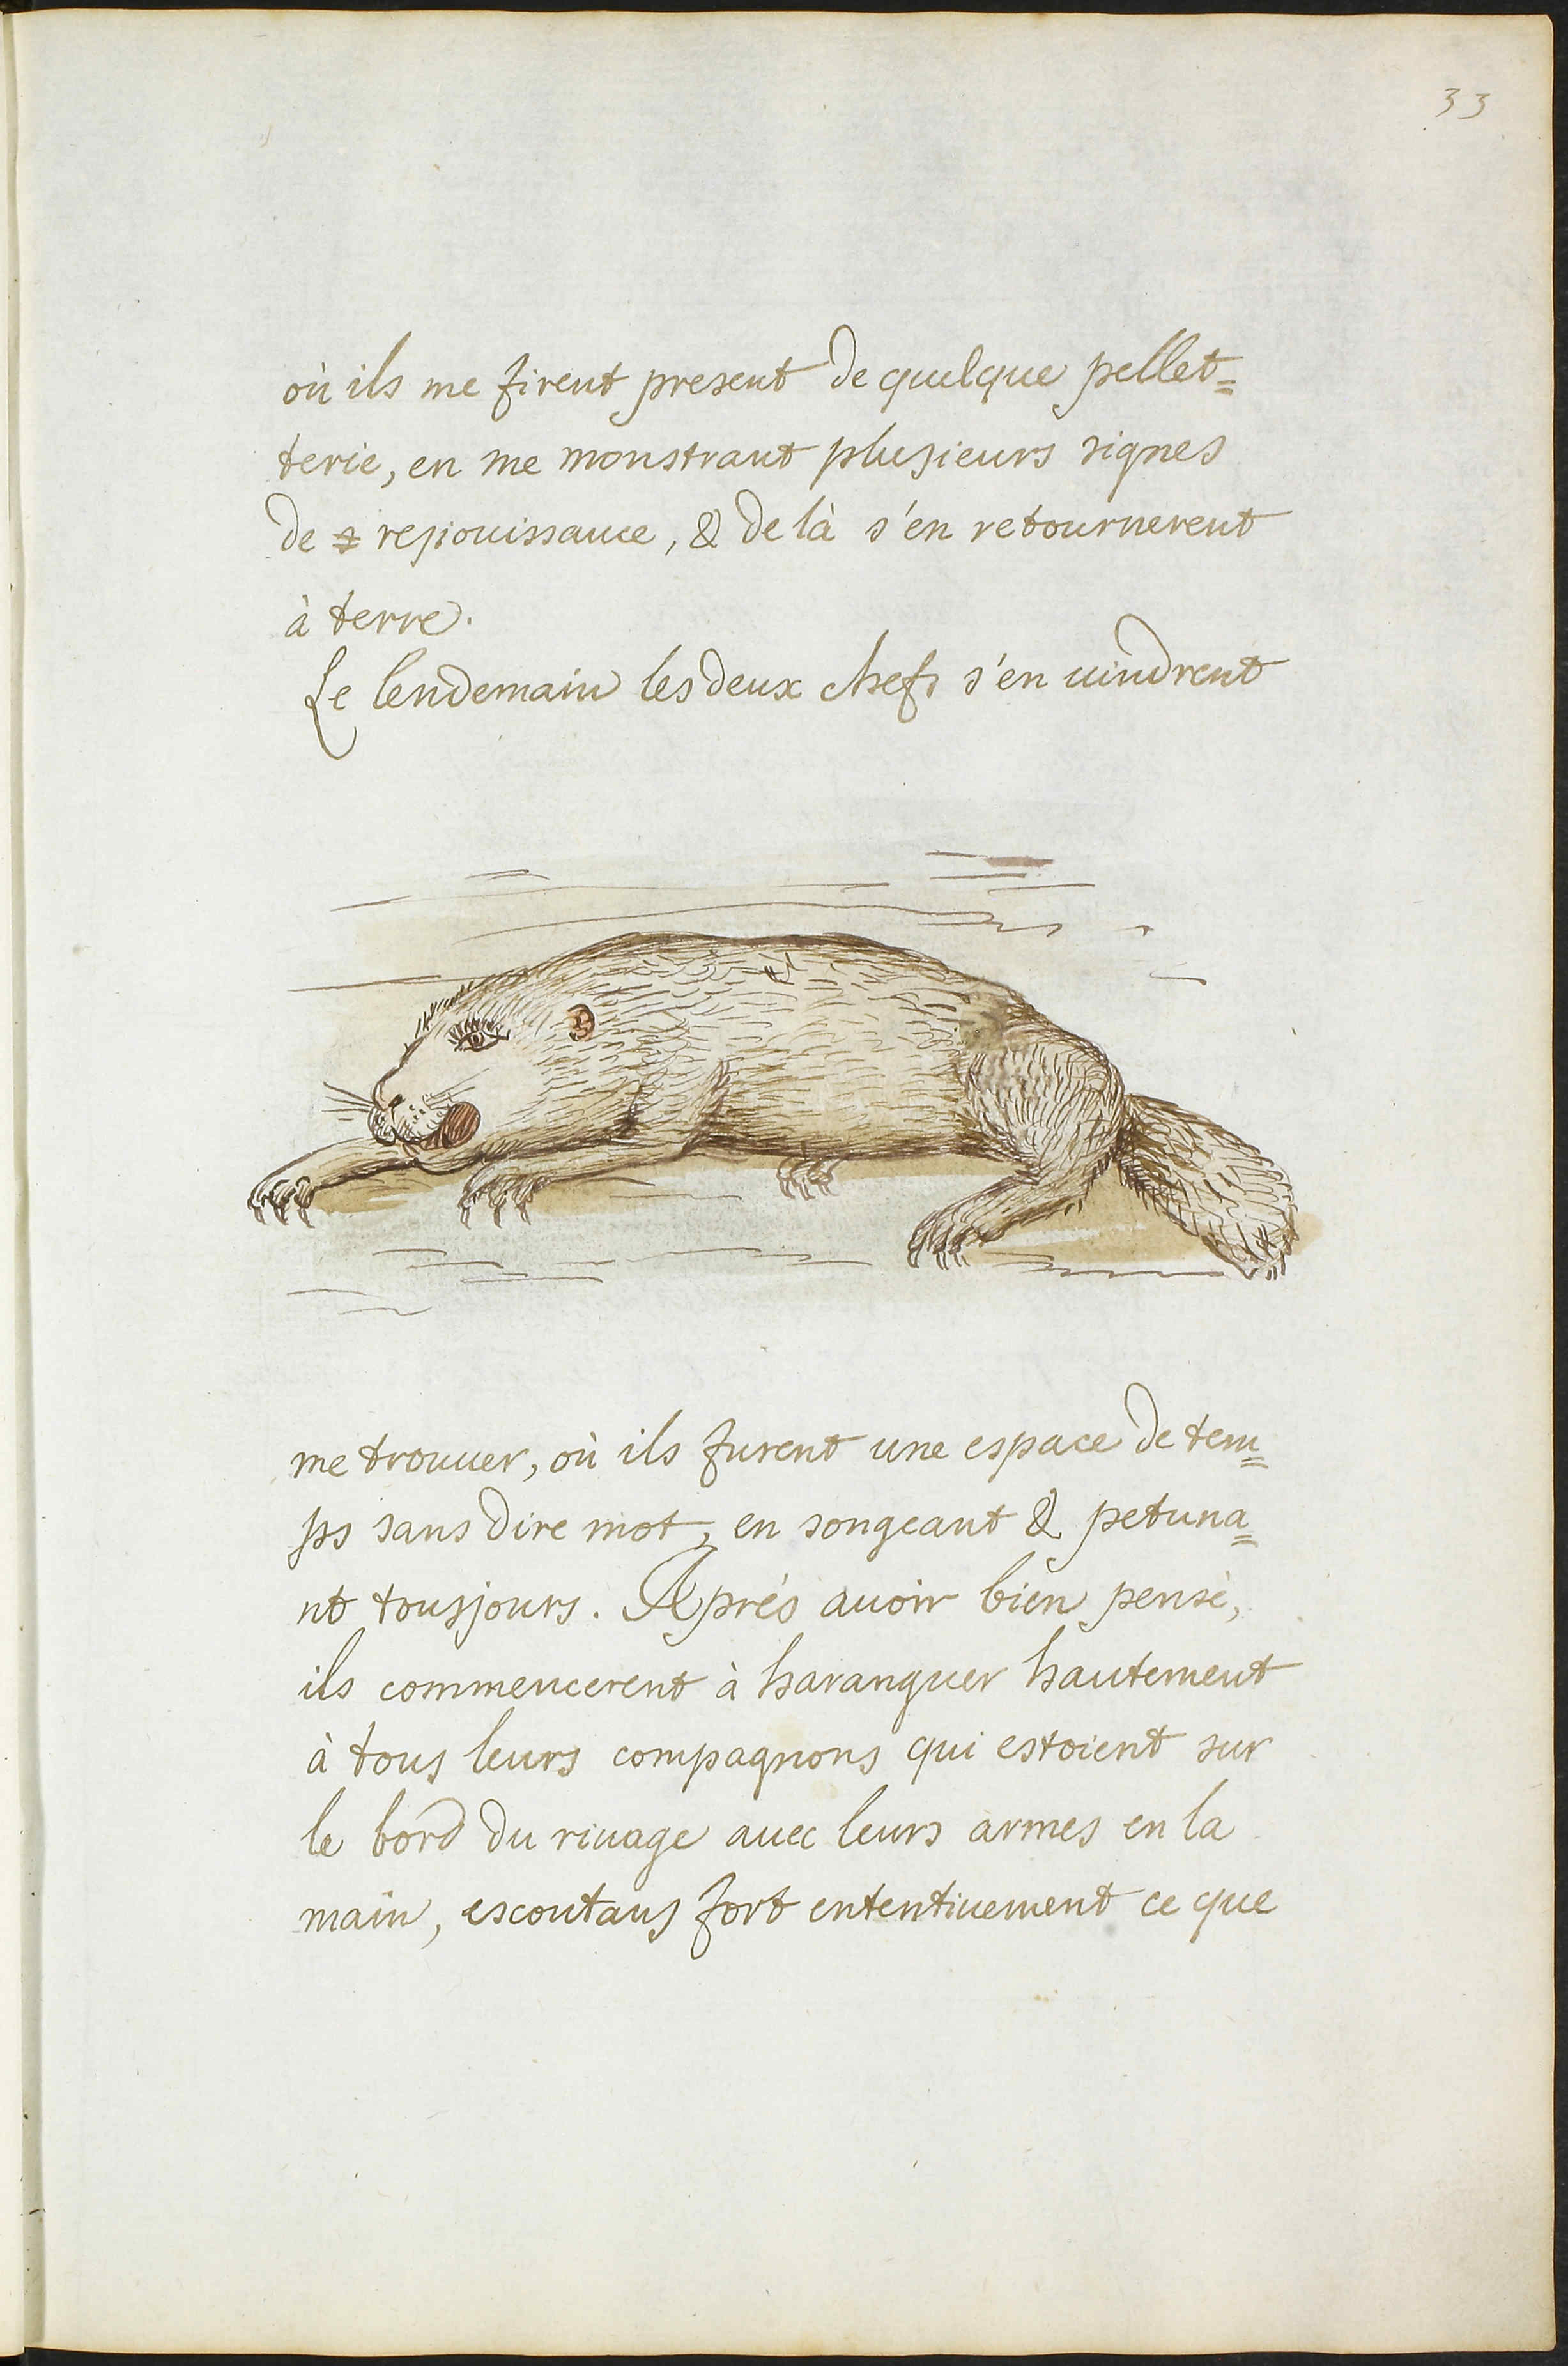 33
où ils me firent present de quelque pellet=
terie, en me monstrant plusieurs signes
de resiouissance, & de là s'en retournerent
à terre.
Le lendemain les deux chefs s'en uindrent
me trouuer, où ils furent une espace de tem=
ps sans dire mot, en songeant & petuna=
nt tousjours. Aprés auoir bien pensé,
ils commencerent à haranguer hautement
à tous leurs compagnons qui estoient sur
le bord du riuage auec leurs armes en la
main, escoutans fort ententiuement ce que